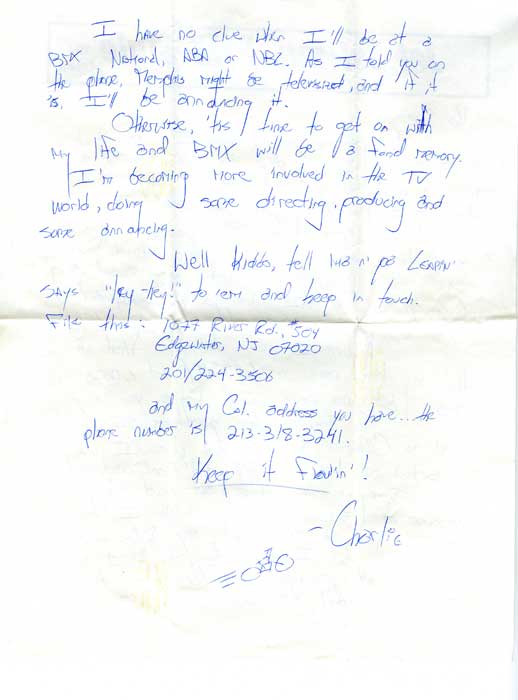 I have no clue when I'll be at a
BMX National, ABA or NBL. As I told you on
the phone, Memphis might be televised, and if it
is, I'll be announcing it.
Otherwise, 'tis time to get on with
my life and BMX will be a fond memory.
I'm becoming more involved in the TV
world, doing some directing, producing and
some announcing.
Well Kiddo, tell n' Leapin'
says "hey-hey!" to 'em and keep in touch.
File this: 1077 River Rd., #504
Edgewater, NJ 07020
201/224-3506
and my Cal. address you have... the
phone number is 213-318-3241.
Keep it Flowin'!
- Charlie